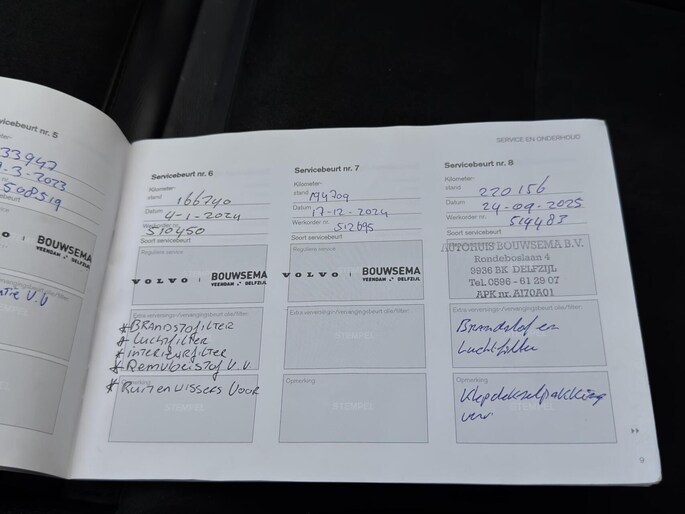 vicebeurt nr. 5
Kilometer-
33947
-3-2023
508519
cebeurt
V.V
SERVICE EN ONDERHOUD
Servicebeurt nr. 6
Kilometer-
stand 166740
Datum 4-1-2024
Werkorder nr. 510450
Soort servicebeurt
Reguliere service
VOLVO | BOUWSEMA
VEENDAM DELFZIJL
Extra verversings-/vervangingsbeurt olie/filter:
* BRANDSTOFILTER
* LUCHTFILTER
* INTERIEURFILTER
* REMVLOEISTOF V.V
Opmerking
* RUITENWISSERS VOOR
STEMPEL
Servicebeurt nr. 7
Kilometer-
stand 194709
Datum 17-12-2024
Werkorder nr. 512695
Soort servicebeurt
Reguliere service
VOLVO | BOUWSEMA
VEENDAM DELFZIJL
Extra verversings-/vervangingsbeurt olie/filter:
STEMPEL
Opmerking
STEMPEL
Servicebeurt nr. 8
Kilometer-
stand 220.156
Datum 24-09-2025
Werkorder nr. 514483
Soort servicebeurt
AUTOHUIS BOUWSEMA B.V.
Rondeboslaan 4
9936 BK DELFZIJL
Tel. 0596 - 61 29 07
APK nr. A170A01
Extra verversings-/vervangingsbeurt olie/filter:
Brandstof en
Luchtfilter
Opmerking
Klepdekselpakking
verv
9